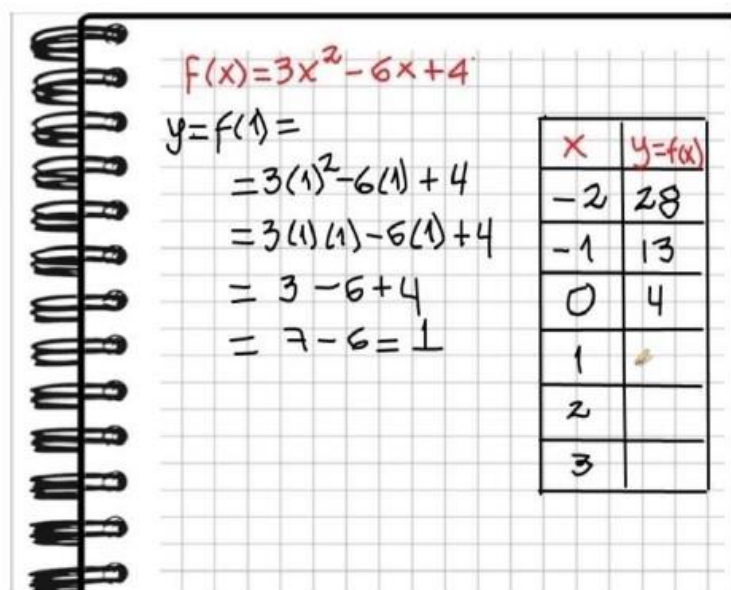 f(x)=3x²-6x+4
y=f(1)=
=3(1)²-6(1)+4
=3(1)(1)-6(1)+4
= 3-6+4
= 7-6=1
x y=f(x)
-2 28
-1 13
0 4
1
2
3